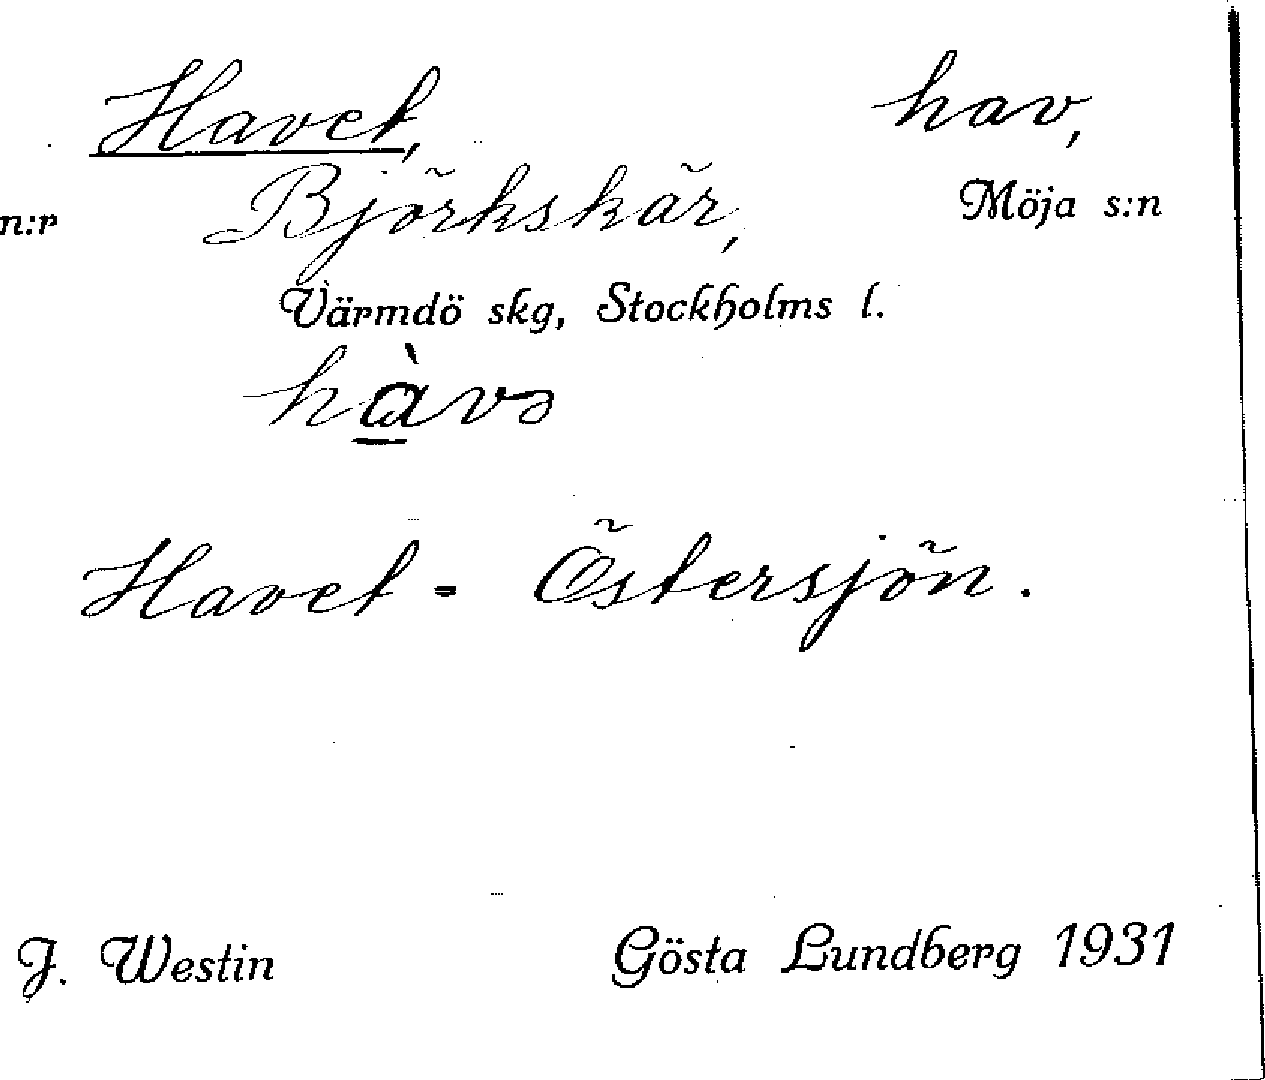 Havet, hav,
n:r Björkskär, Möja s:n
Värmdö skg, Stockholms l.
hàvə
Havet = Östersjön.
J. Westin Gösta Lundberg 1931